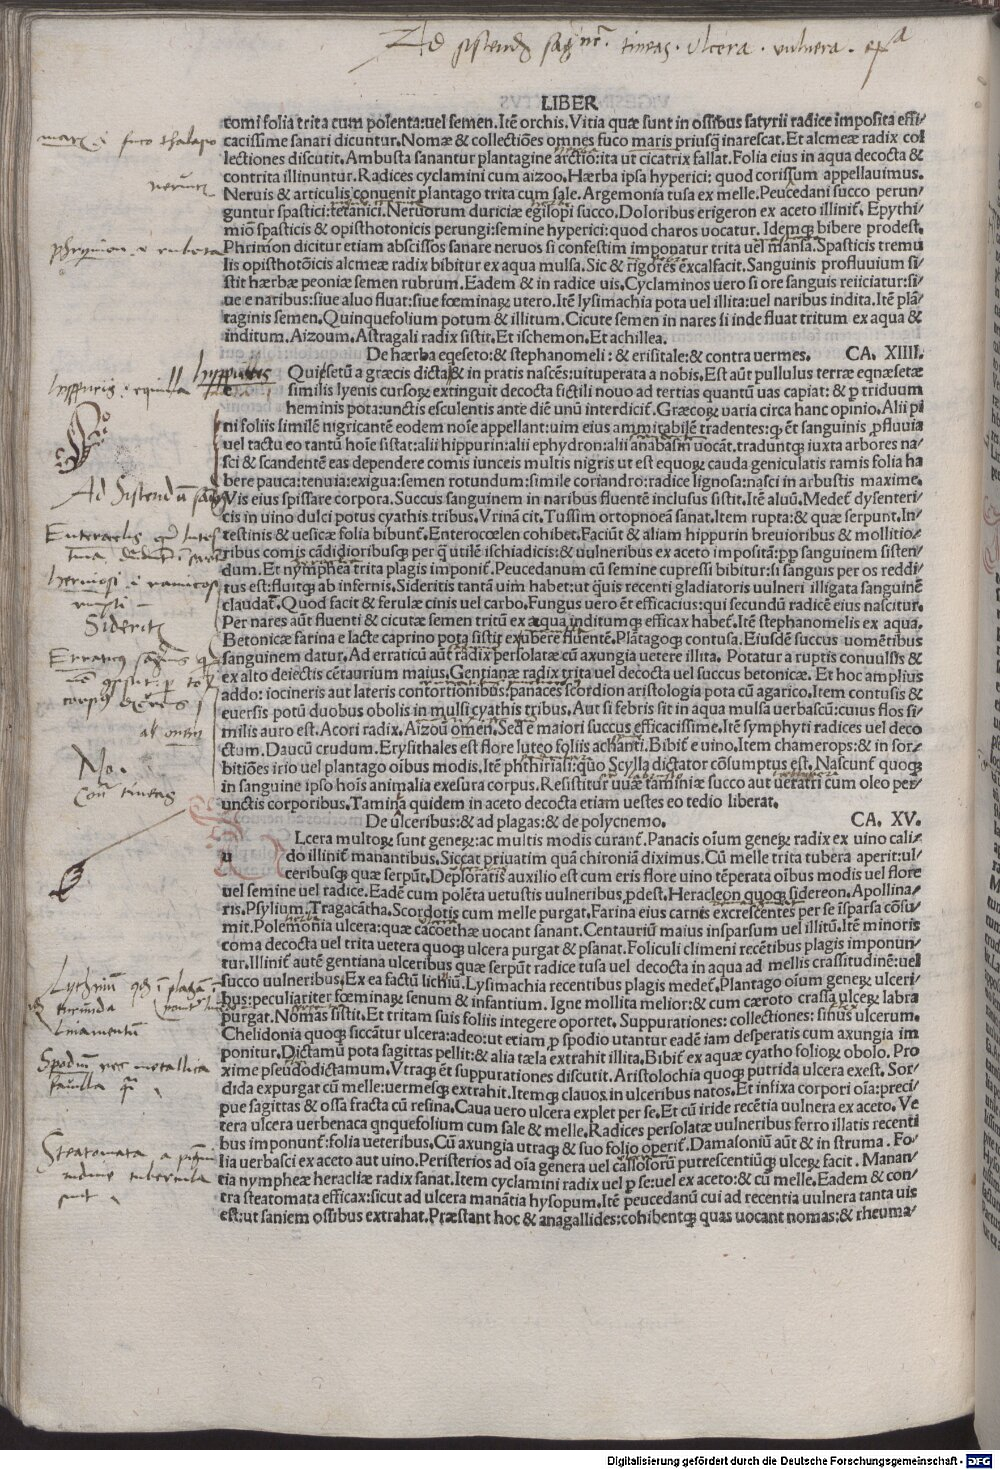 Ad sistendũ sãg̃nẽ. tineas. Ulcera. vulnera.
LIBER
comi folia trita cum polenta:uel semen.Itẽ orchis.Vitia quæ sunt in ossibus satyrii radice imposita effi/
cacissime sanari dicuntur.Nomæ & collectiões omnes fuco maris priusq̃ inarescat.Et alcmeæ radix col
lectiones discutit.Ambusta sanantur plantagine arctio:ita ut cicatrix fallat.Folia eius in aqua decocta &
contrita illinuntur.Radices cyclamini cum aizoo.Hærba ipsa hyperici: quod corissum appellauimus.
Neruis & articulis conuenit plantago trita cum sale.Argemonia tusa ex melle.Peucedani succo perun/
guntur spastici:tetanici.Neruorum duriciæ egilopi succo.Doloribus erigeron ex aceto illinit̃.Epythi/
miõ spasticis & opisthotonicis perungi:semine hyperici:quod charos uocatur.Idemqꝫ bibere prodest.
Phrimion dicitur etiam abscissos sanare neruos si confestim imponatur trita uel mansa.Spasticis tremu
lis opisthotõicis alcmeæ radix bibitur ex aqua mulsa.Sic & rigores excalfacit.Sanguinis profluuium si/
stit hærbæ peoniæ semen rubrum.Eadem & in radice uis.Cyclaminos uero si ore sanguis reiiciatur:si/
ue e naribus:siue aluo fluat:siue fœminaꝝ utero.Itẽ lysimachia pota uel illita:uel naribus indita.Itẽ plã/
taginis semen.Quinquefolium potum & illitum.Cicute semen in nares si inde fluat tritum ex aqua &
inditum.Aizoum.Astragali radix sistit.Et ischemon.Et achillea.
De hærba eqseto:& stephanomeli: & erisitale:& contra uermes. CA. XIIII.
e Quisetũ a græcis dicta & in pratis nascẽs:uituperata a nobis.Est aũt pullulus terræ eqnæsetæ
similis lyenis cursoꝝ extringuit decocta fictili nouo ad tertias quantũ uas capiat: & ꝑ triduum
heminis pota:unctis esculentis ante diẽ unũ interdicit̃.Græcoꝝ uaria circa hanc opinio.Alii pi
ni foliis similẽ nigricantẽ eodem noĩe appellant:uim eius ammitabilẽ tradentes:qꝫ ẽt sanguinis ꝓfluuia
uel tactu eo tantũ hoĩe sistat:alii hippurin:alii ephydron:alii anabasin uocãt.traduntqꝫ iuxta arbores na/
sci & scandentẽ eas dependere comis iunceis multis nigris ut est equoꝝ cauda geniculatis ramis folia ha
bere pauca:tenuia:exigua:semen rotundum:simile coriandro:radice lignosa:nasci in arbustis maxime.
Vis eius spissare corpora.Succus sanguinem in naribus fluentẽ inclusus sistit.Itẽ aluũ.Medet̃ dysenteri/
cis in uino dulci potus cyathis tribus.Vrinã cit.Tussim ortopnoeã sanat.Item rupta:& quæ serpunt.In/
testinis & uesicæ folia bibunt̃.Enterocœlen cohibet.Faciũt & aliam hippurin breuioribus & mollitio/
ribus comis cãdidioribusqꝫ per q̃ utilẽ ischiadicis:& uulneribus ex aceto impositã:ꝓp sanguinem sisten/
dum.Et nymphea trita plagis imponit̃.Peucedanum cũ semine cupressi bibitur:si sanguis per os reddi/
tus est:fluitqꝫ ab infernis.Sideritis tantã uim habet:ut q̃uis recenti gladiatoris uulneri illigata sanguinẽ
claudat̃.Quod facit & ferulæ cinis uel carbo.Fungus uero ẽt efficacius:qui secundũ radicẽ eius nascitur.
Per nares aũt fluenti & cicutæ semen tritũ ex aqua inditumqꝫ efficax habet̃.Itẽ stephanomelis ex aqua.
Betonicæ farina e lacte caprino pota sistit ex ubere fluentẽ.Plãtagoqꝫ contusa.Eiusdẽ succus uomẽtibus
sanguinem datur.Ad erraticũ aũt radix persolatæ cũ axungia uetere illita. Potatur a ruptis conuulsis &
ex alto deiectis cẽtaurium maius.Gentianæ radix trita uel decocta uel succus betonicæ. Et hoc amplius
addo: iocineris aut lateris contortionibus:panaces scordion aristologia pota cũ agarico.Item contusis &
euersis potũ duobus obolis in mulsi cyathis tribus. Aut si febris sit in aqua mulsa uerbascũ:cuius flos si/
milis auro est.Acori radix.Aizoũ omen.Sed e maiori succus efficacissime.Itẽ symphyti radices uel deco
ctum.Daucũ crudum.Erysithales est flore luteo foliis achanti.Bibit̃ e uino.Item chamerops:& in sor/
bitiões irio uel plantago oibus modis.Itẽ phthiriasi:quo Scylla dictator cõsumptus est.Nascunt̃ quoqꝫ
in sanguine ipso hoĩs animalia exesura corpus.Resistitur uuæ taminiæ succo aut ueratri cum oleo per/
unctis corporibus.Tamina quidem in aceto decocta etiam uestes eo tedio liberat.
De ulceribus:& ad plagas:& de polycnemo. CA. XV.
u Lcera multoꝝ sunt geneꝝ:ac multis modis curant̃.Panacis oĩum geneꝝ radix ex uino cali/
do illinit̃ manantibus.Siccat priuatim quã chironiã diximus.Cũ melle trita tubera aperit:ul/
ceribusqꝫ quæ serpũt.Deploratis auxilio est cum eris flore uino tẽperata oĩbus modis uel flore
uel semine uel radice.Eadẽ cum polẽta uetustis uulneribus ꝓdest.Heracleon quoqꝫ sidereon.Apollina/
ris.Psylium.Tragacãtha.Scordotis cum melle purgat.Farina eius carnis excrescentes per se ĩsparsa cõsu/
mit.Polemonia ulcera:quæ cacoethæ uocant sanant.Centauriũ maius insparsum uel illitũ.Itẽ minoris
coma decocta uel trita uetera quoqꝫ ulcera purgat & ꝑsanat.Foliculi climeni recẽtibus plagis imponun/
tur.Illinit̃ autẽ gentiana ulceribus quæ serpũt radice tusa uel decocta in aqua ad mellis crassitudinẽ:uel
succo uulneribus.Ex ea factũ lichiũ.Lysimachia recentibus plagis medet̃.Plantago oĩum geneꝝ ulceri/
bus:peculiariter fœminaꝝ senum & infantium. Igne mollita melior:& cum cæroto crassa ulceꝝ labra
purgat.Nomas sistit.Et tritam suis foliis integere oportet. Suppurationes: collectiones: sinus ulcerum.
Chelidonia quoqꝫ siccãtur ulcera:adeo:ut etiam ꝓ spodio utantur eadẽ iam desperatis cum axungia im
ponitur.Dictamũ pota sagittas pellit:& alia tæla extrahit illita.Bibit̃ ex aquæ cyatho folioꝝ obolo. Pro
xime pseudodictamum.Vtraqꝫ ẽt suppurationes discutit.Aristolochia quoqꝫ putrida ulcera exest. Sor/
dida expurgat cũ melle:uermesqꝫ extrahit.Itemqꝫ clauos in ulceribus natos.Et infixa corpori oĩa:preci/
pue sagittas & ossa fracta cũ resina.Caua uero ulcera explet per se.Et cũ iride recẽtia uulnera ex aceto. Ve
tera ulcera uerbenaca qnquefolium cum sale & melle.Radices persolatæ uulneribus ferro illatis recenti
bus imponunt̃:folia ueteribus.Cũ axungia utraqꝫ & suo folio operit̃.Damasoniũ aũt & in struma . Fo/
lia uerbasci ex aceto aut uino.Peristerios ad oĩa genera uel callosorũ putrescentiũqꝫ ulceꝝ facit . Manan/
tia nympheæ heracliæ radix sanat.Item cyclamini radix uel ꝑ se:uel ex aceto:& cũ melle. Eadem & con/
tra steatomata efficax:sicut ad ulcera manãtia hysopum.Itẽ peucedanũ cui ad recentia uulnera tanta uis
est:ut saniem ossibus extrahat.Præstant hoc & anagallides:cohibentqꝫ quas uocant nomas:& rheuma/
hyppuris
Ad Sistendũ
Siderit̃
No.
Cont̃ tineas
Linamentũ
Steatomata
Digitalisierung gefördert durch die Deutsche Forschungsgemeinschaft - DFG